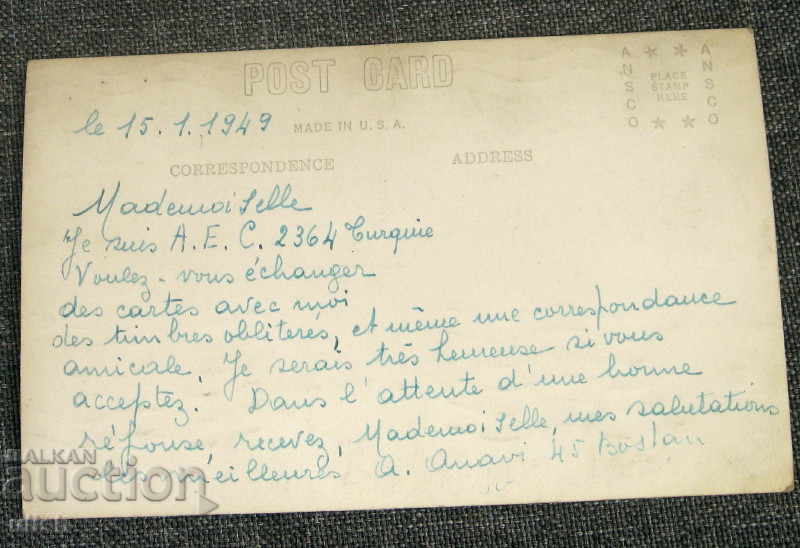 POST CARD
ANSCO
ANSCO
PLACE
STAMP
HERE
le 15.1.1949
MADE IN U.S.A.
CORRESPONDENCE
ADDRESS
Mademoiselle
Je suis A.E.C. 2364 Turquie
Voulez-vous échanger
des cartes avec moi
des timbres obliterés, et même une correspondance
amicale. Je serais très heureuse si vous
acceptez. Dans l'attente d'une bonne
réponse, recevez, Mademoiselle, mes salutations
les meilleures A. Anavi 45 Bostan
BALKAN
auction